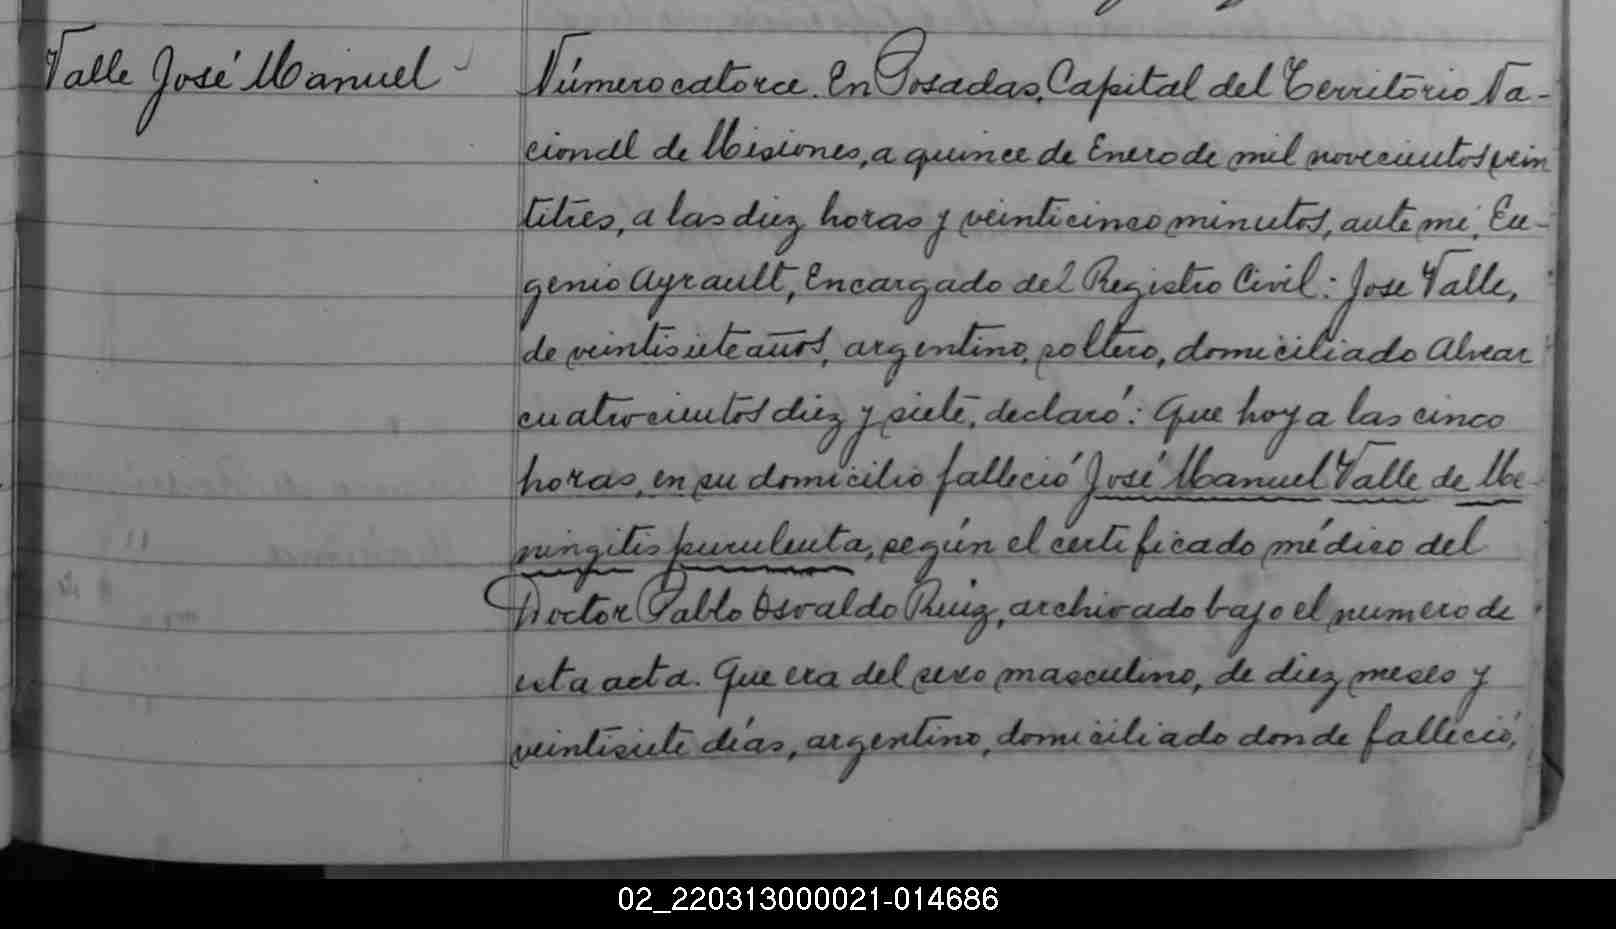 Valle José Manuel -
Número catorce. En Posadas, Capital del Territorio Na-
cional de Misiones, a quince de Enero de mil novecientos vein
titrés, a las diez horas y veinticinco minutos, ante mi, Eu-
genio Ayrault, Encargado del Registro Civil: Jose Valle,
de veintisiete años, argentino, soltero, domiciliado Alvear
cuatrocientos diez y siete, declaró: Que hoy a las cinco
horas, en su domicilio falleció José Manuel Valle de Me-
ningitis purulenta, según el certificado médico del
Doctor Pablo Osvaldo Ruiz, archivado bajo el numero de
esta acta. Que era del sexo masculino, de diez meses y
veintisiete días, argentino, domiciliado donde falleció,
02_220313000021-014686